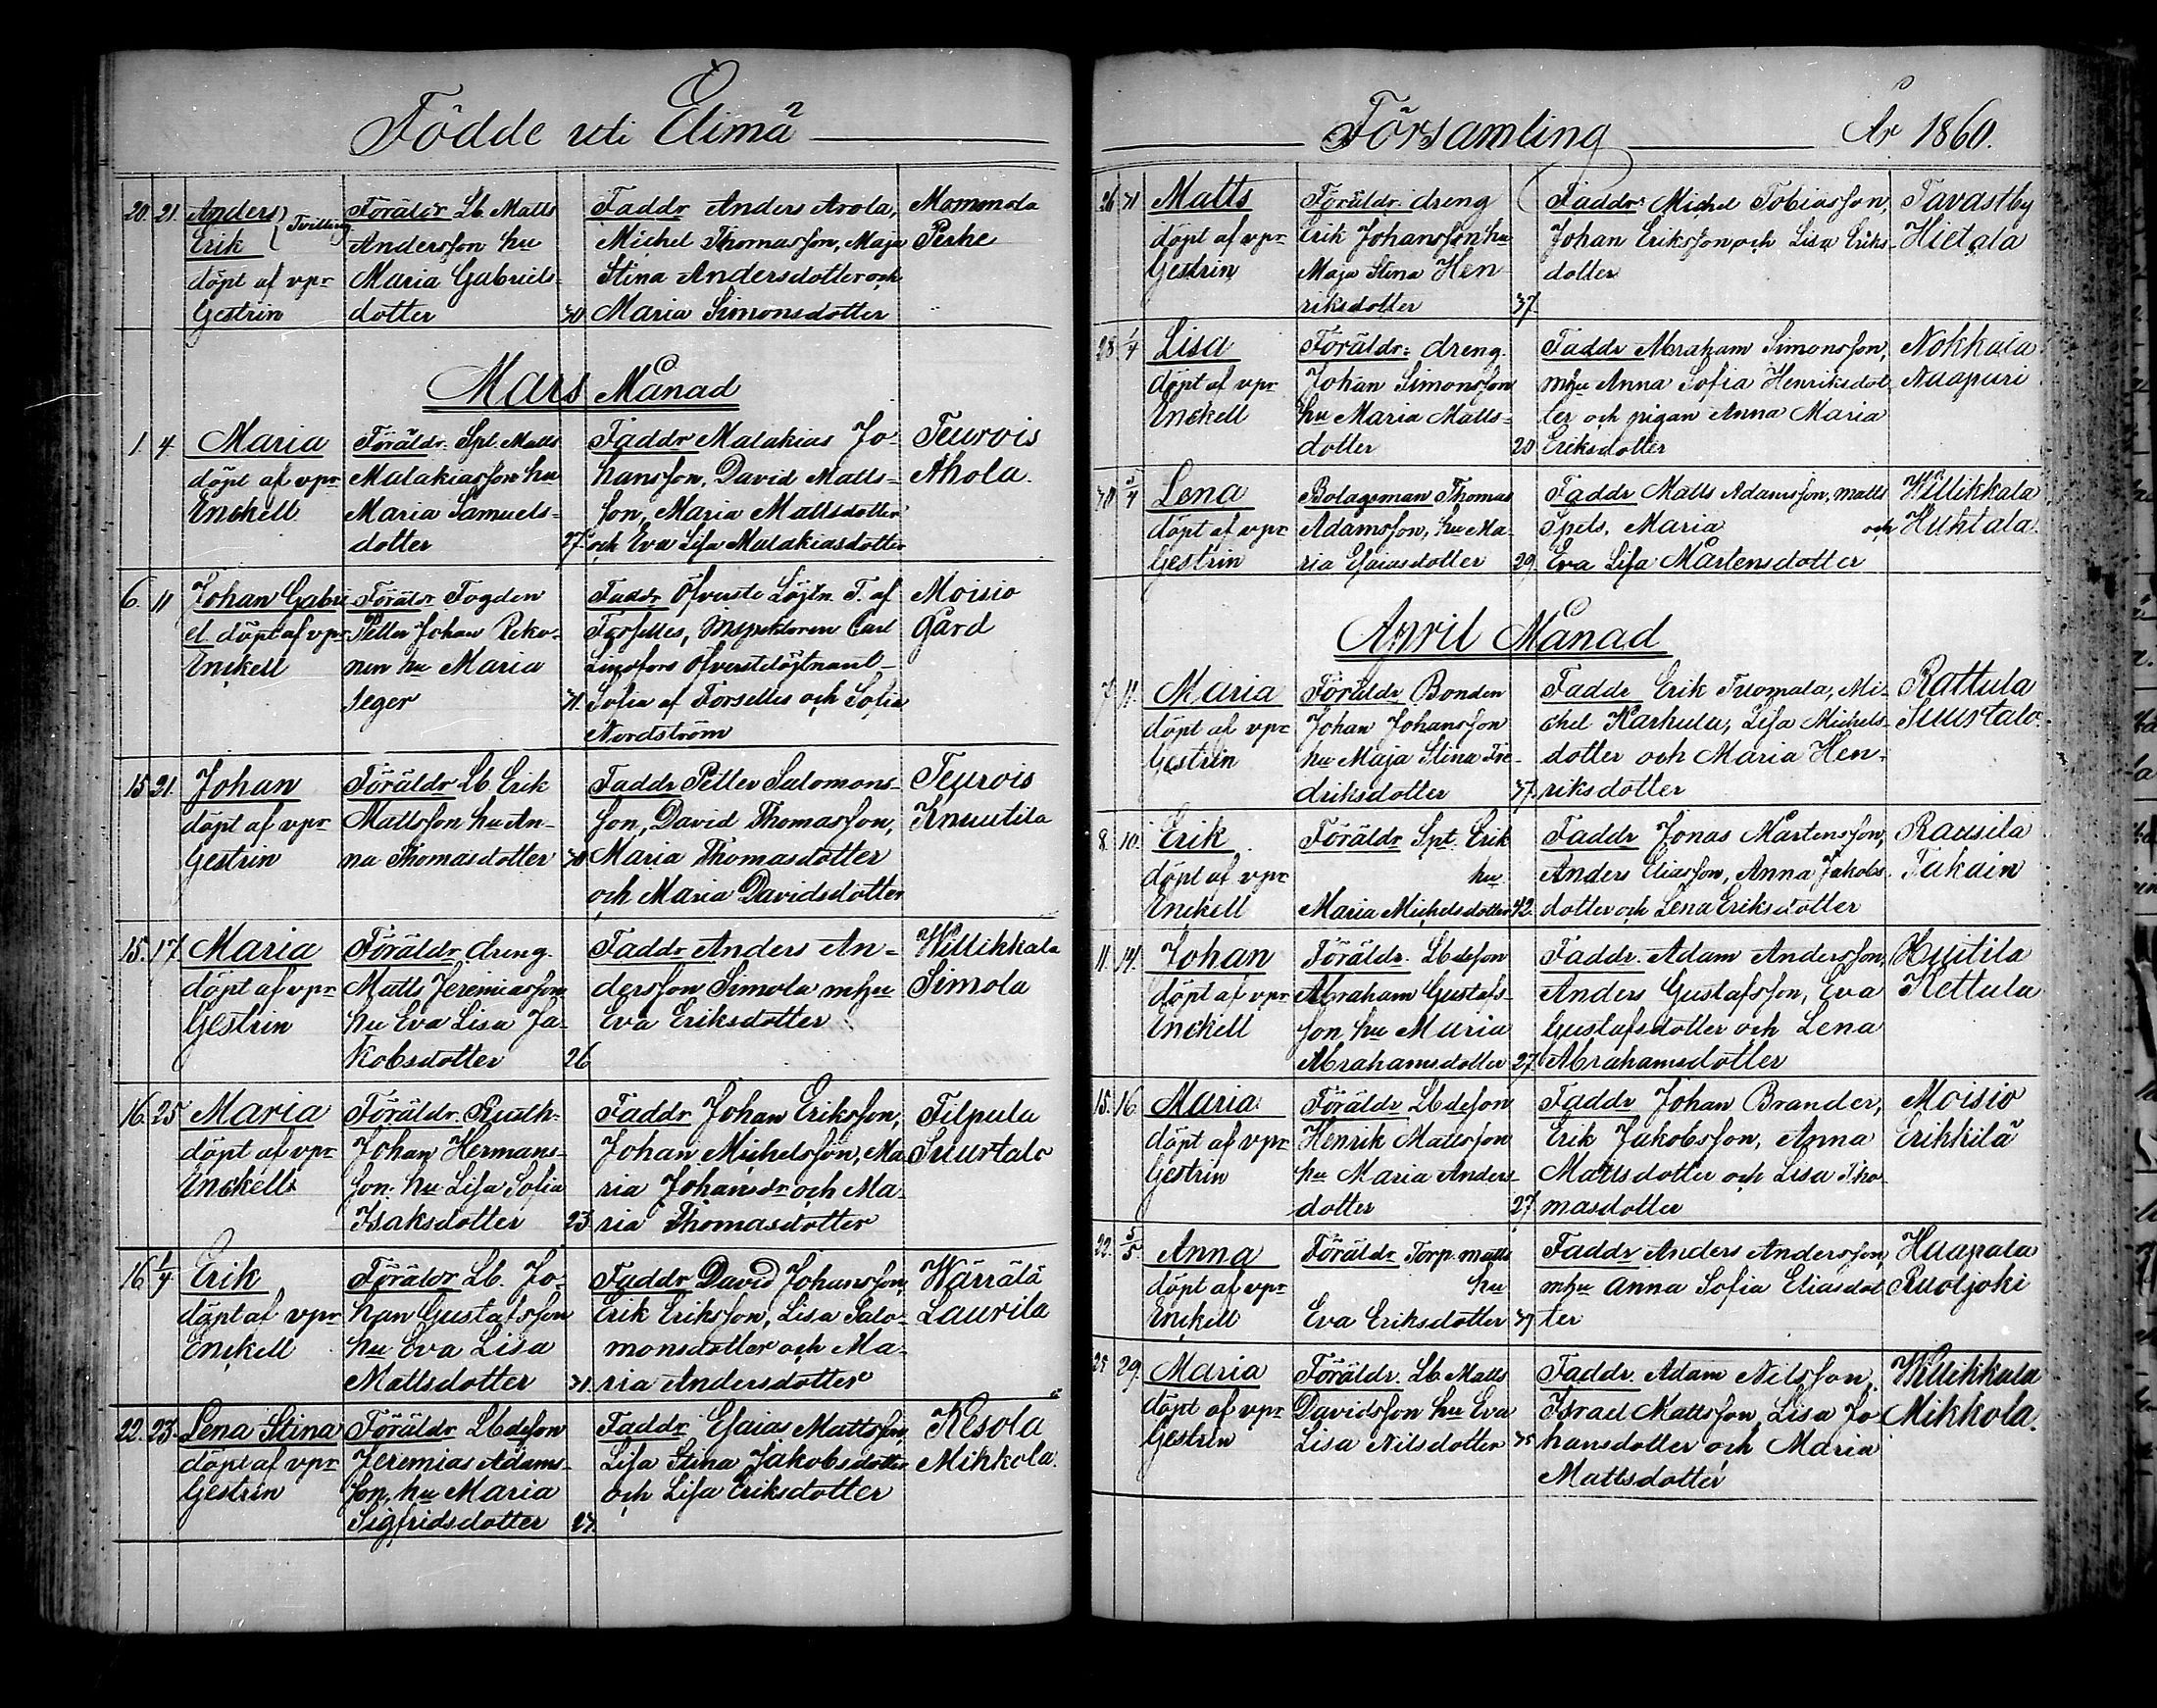 Födde uti Elimä
20. 21. Anders Erik } Tvilling döpt af vpr Gestrin
Föräldr Lb. Matts Andersson hu Maria Gabriels- dotter
Faddr Anders Arola, Michel Thomasson, Maja Stina Andersdotter och Maria Simonsdotter
Mommola Perhe
Mars Månad
1. 4. Maria döpt af vpr Enckell
Föräldr. Spl. Matts Malakiasson hu Maria Samuels- dotter 27.
Faddr Malakias Jo- hansson, David Matts- son, Maria Mattsdotter och Eva Lisa Malakiasdotter
Teurois Ahola.
6. 11 Johan Gabri el döpt af vpr Enckell
Föräldr Fogden Petter Johan Peko- nen hu Maria Jeger 31.
Faddr Öfverste Löjtn. T. af Forselles, Inspektoren Carl Lindfors Öfverstelöjtnant- Sofia af Forselles och Sofia Nordström
Moisio Gård
15 21. Johan döpt af vpr Gestrin
Föräldr Lb Erik Mattsson hu An- na Thomasdotter 30
Faddr Petter Salomons- son, David Thomasson, Maria Thomasdotter och Maria Davidsdotter
Teurois Knuutila
15. 17. Maria döpt af vpr Gestrin
Föräldr. dreng. Matts Jeremiasson hu Eva Lisa Ja- kobsdotter 26
Faddr Anders An- dersson Simola mhu Eva Eriksdotter
Willikkala Simola
16. 25 Maria döpt af vpr Enckell
Föräldr. Johan Hermans- son. hu Lisa Sofia Isaksdotter 23.
Faddr Johan Eriksson, Johan Michelsson, Ma ria Johansdr och Ma- ria Thomasdotter
Filpula Suurtalo
16 1/4 Erik döpt af vpr Enckell
Föräldr Lb. Jo- han Gustafsson hu Eva Lisa Mattsdotter 31.
Faddr David Johansson, Erik Eriksson, Lisa Salo- monsdotter och Ma- ria Andersdotter
Wärrälä Laurila
22. 23. Lena Stina döpt af vpr Gestrin
Föräldr Lbdeson Jeremias Adams- son, hu Maria Sigfridsdotter 27.
Faddr Esaias Mattsson, Lisa Stina Jakobsdotter och Lisa Eriksdotter
Kesola Mikkola.
Församling År 1860.
26 31 Matts döpt af vpr Gestrin
Föräldr dreng Erik Johansson hu Maja Stina Hen riksdotter 37.
Faddr Michel Tobiasson, Johan Eriksson och Lisa Eriks- dotter
Tavastby Hietala
28 1/4 Lisa döpt af vpr Enckell
Föräldr: dreng. Johan Simonsson hu Maria Matts- dotter 20
Faddr Abraham Simonsson, mhu Anna Sofia Henriksdot ter och pigan Anna Maria Eriksdotter
Nokkala Naapuri
30 5/4 Lena döpt af vpr Gestrin
Bolagsman Thomas Adamsson, hu Ma- ria Esaiasdotter 29.
Faddr Matts Adamsson, Matts Spels. Maria och Eva Lisa Mårtensdotter
Willikkala Huhtala.
April Månad
7. 11. Maria döpt af vpr Gestrin
Föräldr Bonden Johan Johansson hu Maja Stina Fre- driksdotter 37.
Faddr Erik Tuomala, Mi- chel Karhula, Lisa Michels- dotter och Maria Hen- riksdotter
Rattula Suurtalo.
8. 10. Erik döpt af vpr Enckell
Föräldr Spt. Erik hu Maria Michelsdotter 42.
Faddr Jonas Mårtensson, Anders Eliasson, Anna Jakobs- dotter och Lena Eriksdotter
Rausila Takain
11. 14. Johan döpt af vpr Enckell
Föräldr. Lbdeson Abraham Gustafs- son hu Maria Abrahamsdotter 27.
Faddr. Adam Andersson, Anders Gustafsson, Eva Gustafsdotter och Lena Abrahamsdotter
Huitila Kettula
15. 16. Maria döpt af vpr Gestrin
Föräldr Lbdeson Henrik Mattsson hu Maria Anders- dotter 27.
Faddr Johan Brander, Erik Jakobsson, Anna Mattsdotter och Lisa Tho- masdotter
Moisio Erikkilä
22. 5/5 Anna döpt af vpr Enckell
Föräldr Torp. Matts hu Eva Eriksdotter 39
Faddr Anders Andersson, mhu Anna Sofia Eliasdot ter
Haapala Ruotjoki
25 29. Maria döpt af vpr Gestrin
Föräldr. Lb. Matts Davidsson hu Eva Lisa Nilsdotter 35
Faddr. Adam Nilsson, Israel Mattsson, Lisa Jo hansdotter och Maria Mattsdotter
Willikkala Mikkola.